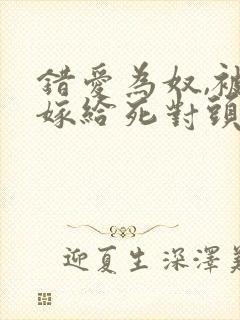 錯愛為奴,被
嫁給死對頭
迎夏生深澤